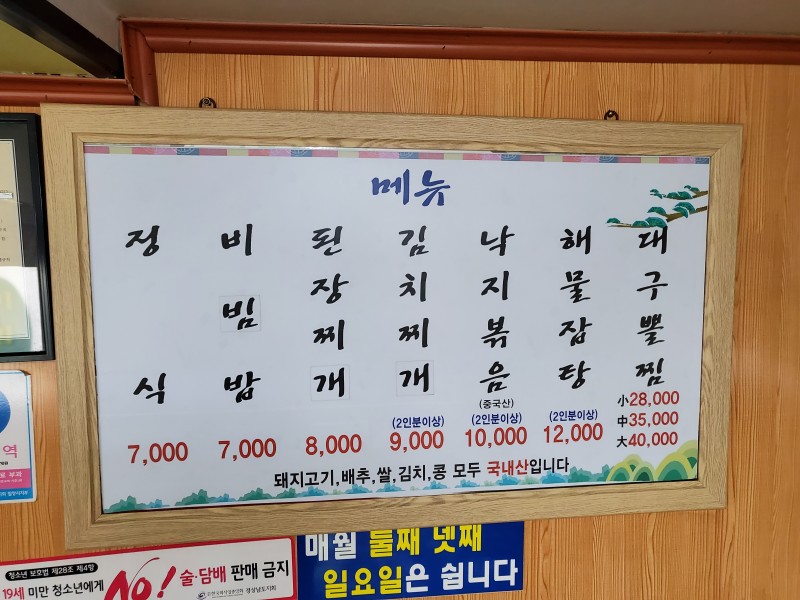 메뉴
정식
7,000
비빔밥
7,000
된장찌개
8,000
김치찌개
(2인분이상)
9,000
낙지볶음
(중국산)
(2인분이상)
10,000
해물잡탕
(2인분이상)
12,000
대구뽈찜
小 28,000
中 35,000
大 40,000
돼지고기,배추,쌀,김치,콩 모두 국내산입니다
청소년 보호법 제28조 제4항
19세 미만 청소년에게
NO! 술·담배 판매 금지
매월 둘째 넷째
일요일은 쉽니다
역